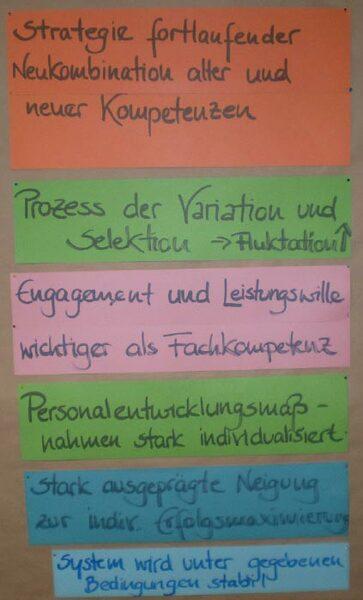 Strategie fortlaufender
Neukombination alter und
neuer Kompetenzen
Prozess der Variation und
Selektion → Fluktation ↑
Engagement und Leistungswille
wichtiger als Fachkompetenz
Personalentwicklungsmaß-
nahmen stark individualisiert
Stark ausgeprägte Neigung
zur indiv. Erfolgsmaximierung
System wird unter gegebenen
Bedingungen stabil!